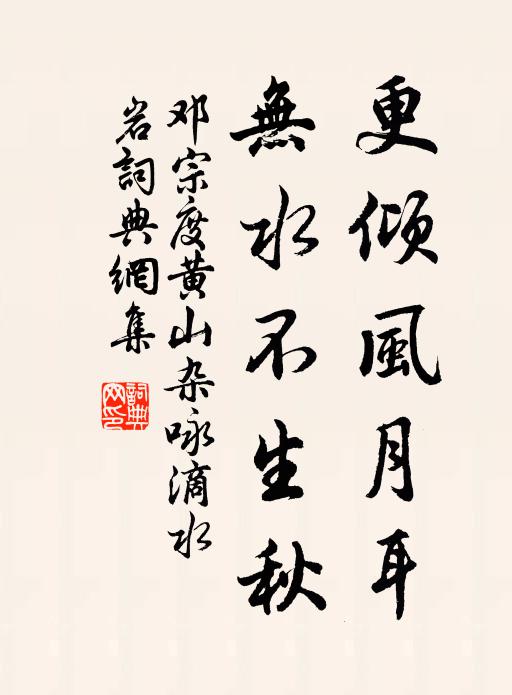 更倾風月耳
無水不生秋
邓宗度黄山杂咏滴水
岩詞典網集
詞典網印